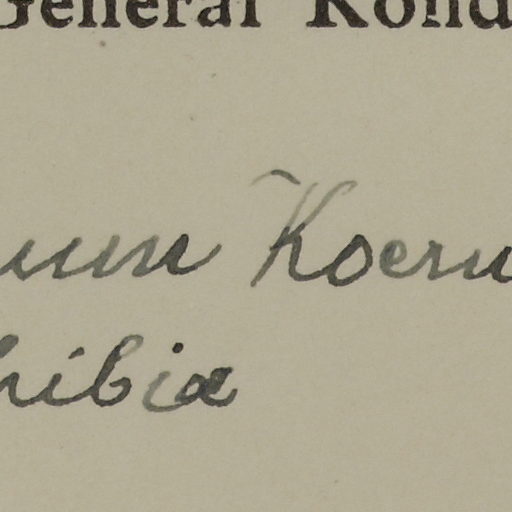 General Kond
Koeru
hibia